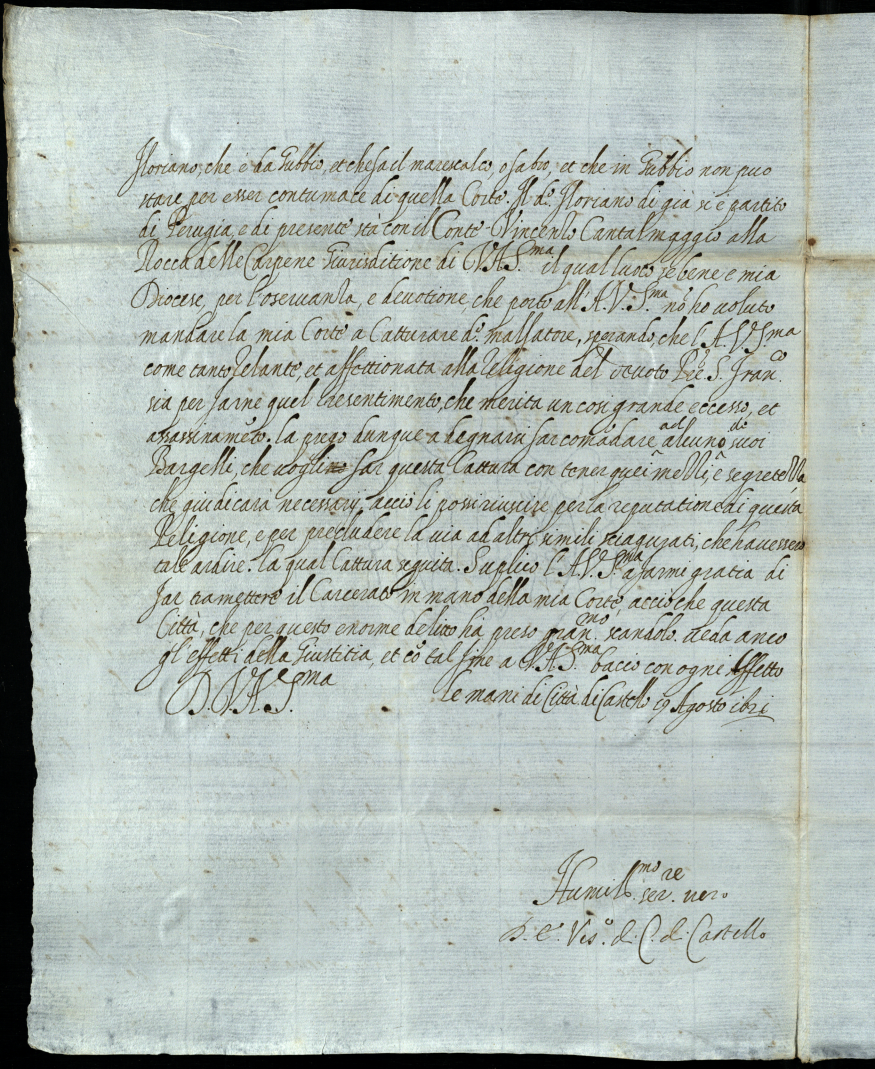 floriano, che è da Gubbio, et che fa il marescalco, o fabro, et che in Gubbio non può
stare per esser contumace di quella Corte. Il do. floriano di già si è partito
di Perugia, e di presente stà con il Conte Vincenzo Cantalmaggio alla
Rocca delle Carpene Giurisditione di V.A.S.ma il qual luoco se bene è mia
Diocese, per l'oservanza, e devotione, che porto all'A.V.S.ma nō ho voluto
mandare la mia Corte a Catturare do. malfatore, sperando, che l'A.V.S.ma
come tanto zelante, et affettionata alla religione del devoto Pre. S. Fran.co
sia per farne quel resentimento, che merita un così grande eccesso, et
assassinamēto. la prego dunque a degnarsi far comādare ad alcuno de suoi
Bargelli, che voglino far questa Cattura con tener quei mezzi, e segretezza
che giudicara necessarij, acciò li possi riuscire per la reputatione di questa
Religione, e per precludere la via ad altri simili sciagurati, che havessero
tale ardire. la qual Cattura seguita. Suplico l'A.V.S.ma a farmi gratia di
far trasmettere il Carcerato in mano della mia Corte, acciò che questa
Città, che per questo enorme delitto ha preso gran.mo scandolo. veda anco
gl'effetti della Giustitia, et cō tal fine a V.A.S.ma bacio con ogni Affetto
D.V.A.S.ma le mani di Città di Castello 19 Agosto 1621
Humill.mo ser.re vero
Vis.o di C. di Castello